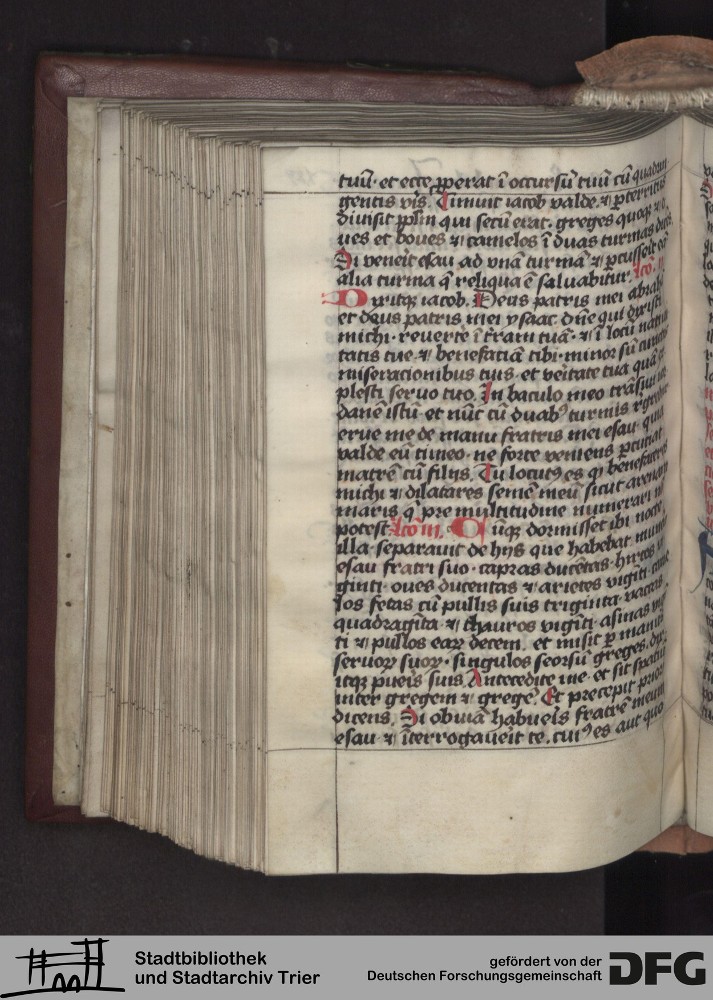 tuū · et ecce pperat ī occursū tuū cū quadrin
gentis viris. Timuit iacob valde. et pterritus
divisit pplm qui secū erat. greges quoqꝫ et o
ues et boues et camelos ī duas turmas dicēs
Si veneit esau ad vnā turmā et pcusseit eā
alia turma q̄ reliqua ē saluabitur. lco. ii
Dixitqꝫ iacob. Deus patris mei abrahā
et deus patris mei ysaac. dn̄e qui dixisti
michi · reuertē ī tr̄am tuā · et ī locū natiui
tatis tue et benefatiā tibi · minor sū cunctis
miseracionibus tuis · et veitate tua quā ex
plesti seruo tuo. In baculo meo trāsiui ior
danē istū · et nūc cū duabꝰ turmis regredior
erue me de manu fratris mei esau · quia
valde eū timeo · ne forte veniens pcutiat
matrē cū filijs. Tu locutꝰ es qꝫ benefaceres
michi et dilatares semē meū sicut arenam
maris q̄ pre multitudine numerari nō
potest. lco iii. Cūqꝫ dormisset ibi nocte
illa · separauit de hijs que habebat munera
esau fratri suo · capras ducētas · hircos vi
ginti · oues ducentas et arietes vigīti · came
los fetas cū pullis suis triginta · vaccas
quadragīta · et thauros vigīti · asinas vigī
ti et pullos eaꝝ decem. et misit p manus
seruoꝝ suoꝝ · singulos seorsū greges. dix
itqꝫ pueis suis. Antecedite me · et sit spatiū
inter gregem et gregē. Et precepit priori
dicens. Si obuiā habueis fratrē meum
esau et īterrogaueit te. cuiꝰ es aut quo
Stadtbibliothek
und Stadtarchiv Trier
gefördert von der
Deutschen Forschungsgemeinschaft
DFG